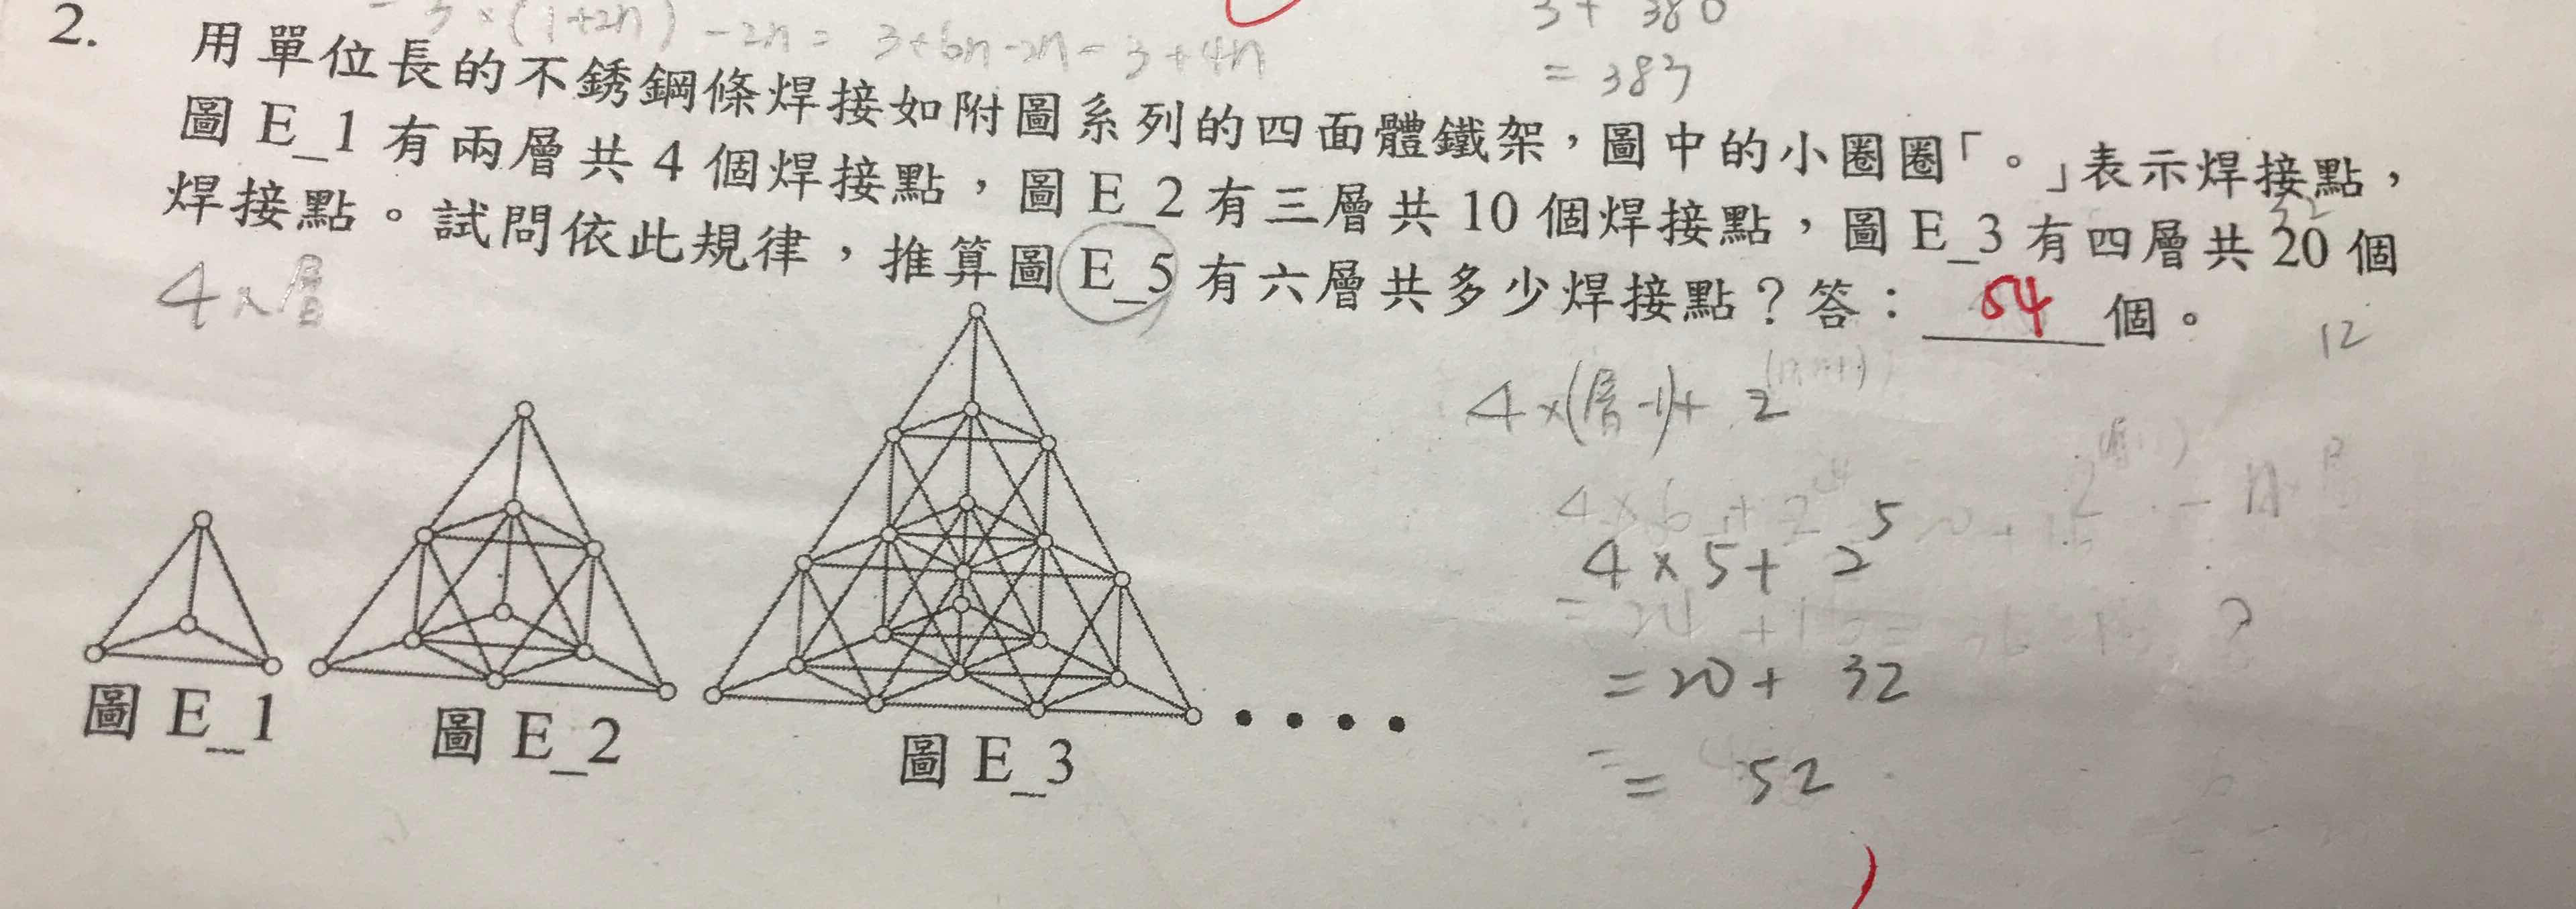 - 3 × (1+2n) - 2n = 3+6n-2n = 3+4n
3 + 380
= 383
2. 用單位長的不銹鋼條焊接如附圖系列的四面體鐵架，圖中的小圈圈「。」表示焊接點，
圖 E_1 有兩層共 4 個焊接點，圖 E_2 有三層共 10 個焊接點，圖 E_3 有四層共 20 個
焊接點。試問依此規律，推算圖 E_5 有六層共多少焊接點？答：54 個。
4 × 層
12
4×(層-1)+ 2
4 × 5 + 2^5
= 20 + 32
= 52
圖 E_1
圖 E_2
圖 E_3